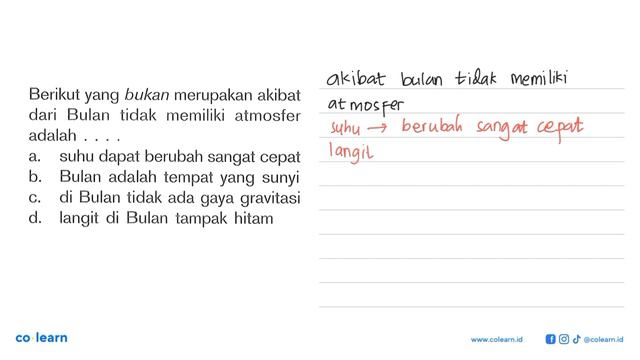 Berikut yang bukan merupakan akibat
dari Bulan tidak memiliki atmosfer
adalah . . . .
a. suhu dapat berubah sangat cepat
b. Bulan adalah tempat yang sunyi
c. di Bulan tidak ada gaya gravitasi
d. langit di Bulan tampak hitam
akibat bulan tidak memiliki
atmosfer
suhu → berubah sangat cepat
langit
co learn
www.colearn.id
@colearn.id